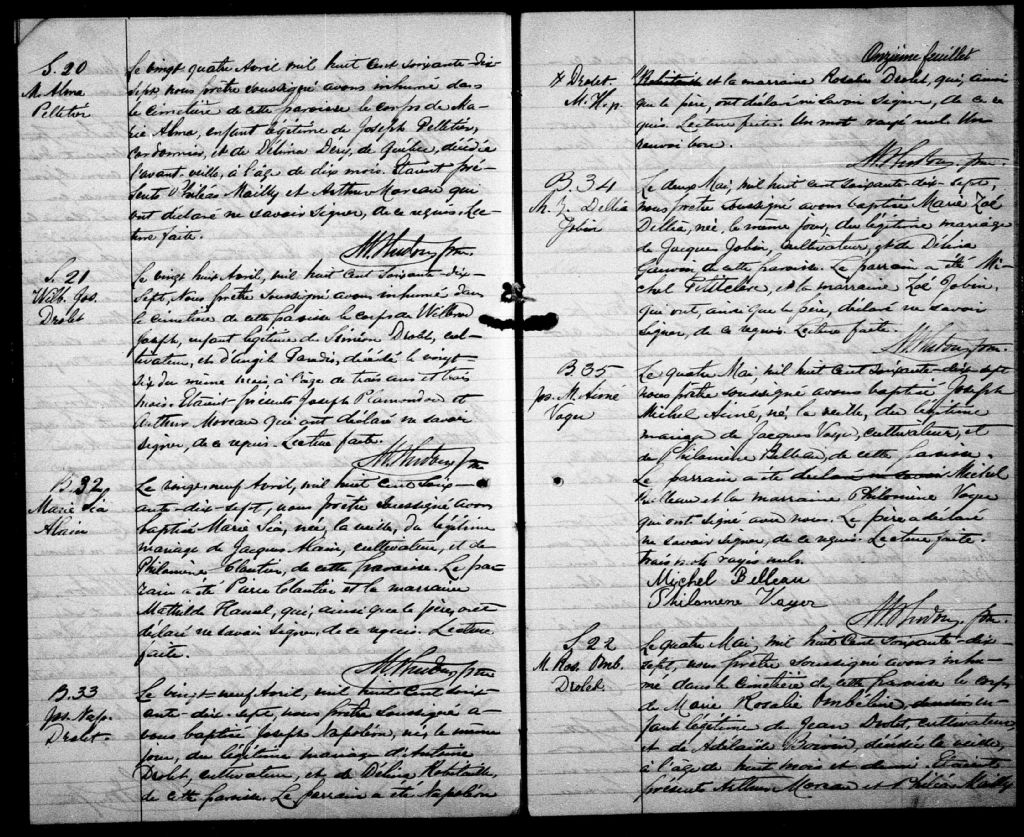 S. 20
M. Alma
Pelletier
Le vingt quatre Avril mil huit cent soixante-dix-
sept, nous prêtre soussigné avons inhumé dans
le cimetière de cette paroisse le corps de Ma-
rie Alma, enfant légitime de Joseph Pelletier,
cordonnier, et de Délima Déry, de Québec, décédée
l'avant-veille, à l'âge de dix mois. Etaient pré-
sents Philéas Mailly et Arthur Moreau qui
ont déclaré ne savoir signer, de ce requis. Lec-
ture faite.
S. 21
Wilb. Jos.
Drolet
Le vingt huit Avril, mil huit cent soixante-dix-
sept, Nous prêtre soussigné avons inhumé dans
le cimetière de cette paroisse le corps de
Joseph, enfant légitime de Siméon Drolet, cul-
tivateur, et d'Angèle Paradis, décédé le vingt
six du même mois, à l'âge de trois ans et trois
mois. Etaient présents Joseph et
Arthur Moreau qui ont déclaré ne savoir
signer, de ce requis. Lecture faite.
B. 32
Marie Léa
Alain
Le vingt-neuf Avril, mil huit cent soix-
ante-dix-sept, nous prêtre soussigné avons
baptisé Marie Léa, née, la veille, du légitime
mariage de Jacques Alain, cultivateur, et de
Philomène Cloutier, de cette paroisse. Le par-
rain a été Pierre Cloutier et la marraine
Mathilde Hamel, qui, ainsi que le père, ont
déclaré ne savoir signer, de ce requis. Lecture
faite.
B. 33
Jos. Nap.
Drolet.
Le vingt-neuf Avril, mil huit cent soix-
ante-dix-sept, nous prêtre soussigné a-
vons baptisé Joseph Napoléon, né, le même
jour, du légitime mariage d'Antoine
Drolet, cultivateur, et de Délina Robitaille,
de cette paroisse. Le parrain a été Napoléon
Onzième feuillet
x Drolet
M. H. p.
Robitaille et la marraine Rosalie Drolet, qui, ainsi
que le père, ont déclaré ne savoir signer, de ce re-
quis. Lecture faite. Un mot rayé nul. Un
renvoi bon.
B. 34
M. Z. Dellia
Jobin
Le deux Mai, mil huit cent soixante-dix-sept,
nous prêtre soussigné avons baptisé Marie Zoé
Dellia, née, le même jour, du légitime mariage
de Jacques Jobin, cultivateur, et de Délina
Gauvin, de cette paroisse. Le parrain a été Mi-
chel Petitclerc, et la marraine Zoé Jobin,
qui ont, ainsi que le père, déclaré ne savoir
signer, de ce requis. Lecture faite.
B 35
Jos. M. Aimé
Voyer
Le quatre Mai, mil huit cent soixante-dix-sept
nous prêtre soussigné avons baptisé Joseph
Michel Aimé, né la veille, du légitime
mariage de Jacques Voyer, cultivateur, et
de Philomène Belleau, de cette paroisse.
Le parrain a été déclaré ne savoir Michel
Belleau et la marraine Philomène Voyer
qui ont signé avec nous. Le père a déclaré
ne savoir signer, de ce requis. Lecture faite.
trois mots rayés nuls.
Michel Belleau
Philomene Voyer
S. 22
M. Ros. Omb.
Drolet.
Le quatre Mai, mil huit cent soixante-dix
sept, nous prêtre soussigné avons inhu-
mé dans le cimetière de cette paroisse le corps
de Marie Rosalie Ombéline, en-
fant légitime de Jean Drolet, cultivateur,
et de Adélaïde Boivin, décédée la veille,
à l'âge de huit mois et demi. Etaient
présents Arthur Moreau et Philéas Mailly